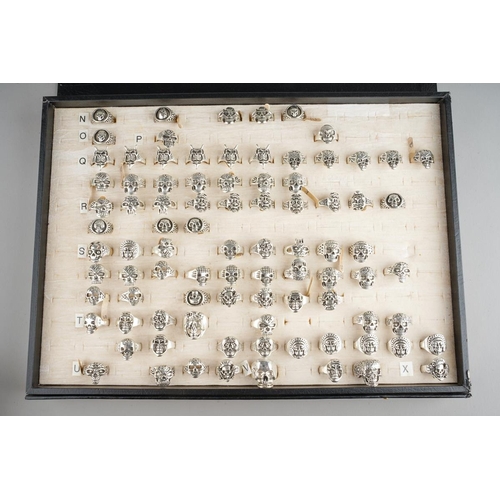 N
O P
Q
R
S
T
U X